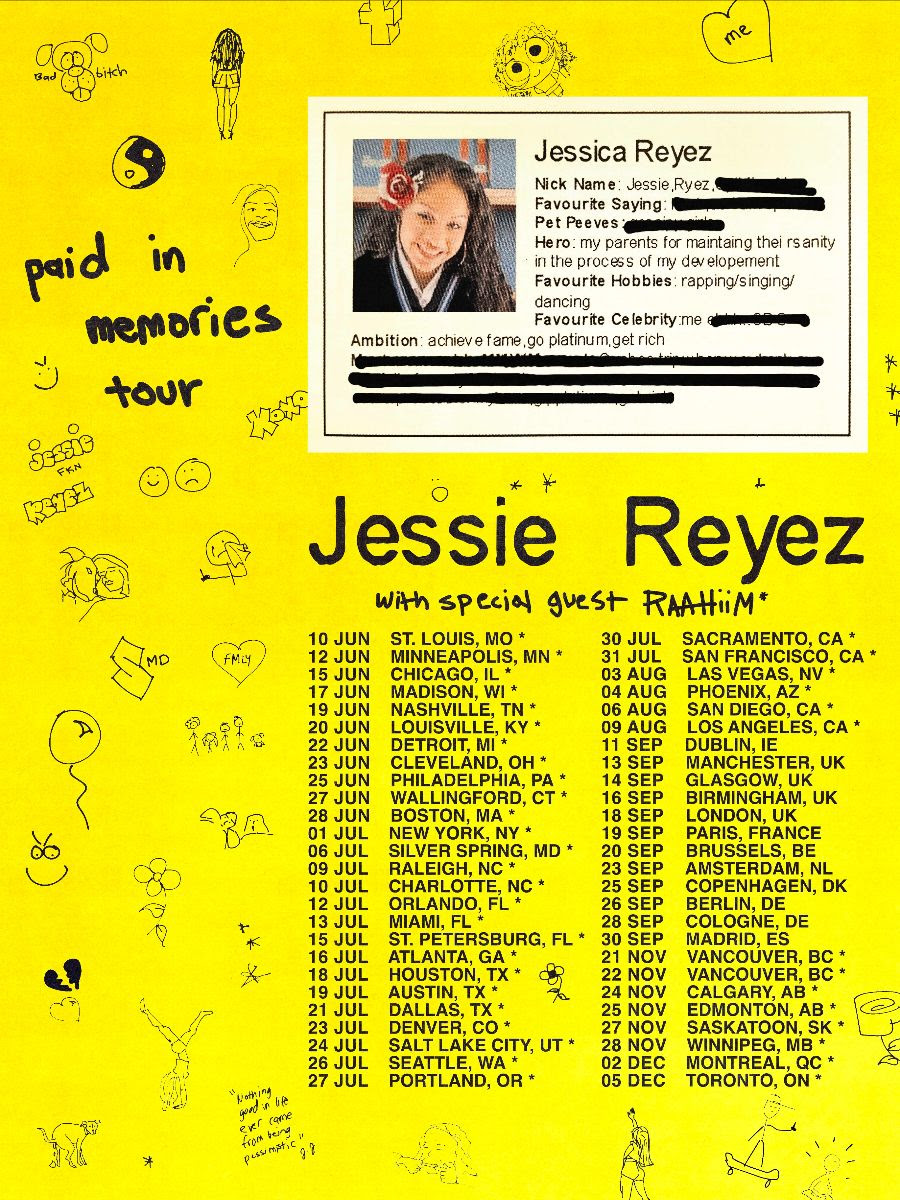 Bad bitch
me
Jessica Reyez
Nick Name: Jessie,Ryez,
Favourite Saying:
Pet Peeves:
Hero: my parents for maintaing thei rsanity
in the process of my developement
Favourite Hobbies: rapping/singing/
dancing
Favourite Celebrity:me
Ambition: achieve fame,go platinum,get rich
paid in
memories
tour
jessie
FKN
reyez
Jessie Reyez
with special guest RAAHiiM*
MD
FMLY
10 JUN ST. LOUIS, MO *
12 JUN MINNEAPOLIS, MN *
15 JUN CHICAGO, IL *
17 JUN MADISON, WI *
19 JUN NASHVILLE, TN *
20 JUN LOUISVILLE, KY *
22 JUN DETROIT, MI *
23 JUN CLEVELAND, OH *
25 JUN PHILADELPHIA, PA *
27 JUN WALLINGFORD, CT *
28 JUN BOSTON, MA *
01 JUL NEW YORK, NY *
06 JUL SILVER SPRING, MD *
09 JUL RALEIGH, NC *
10 JUL CHARLOTTE, NC *
12 JUL ORLANDO, FL *
13 JUL MIAMI, FL *
15 JUL ST. PETERSBURG, FL *
16 JUL ATLANTA, GA *
18 JUL HOUSTON, TX *
19 JUL AUSTIN, TX *
21 JUL DALLAS, TX *
23 JUL DENVER, CO *
24 JUL SALT LAKE CITY, UT *
26 JUL SEATTLE, WA *
27 JUL PORTLAND, OR *
30 JUL SACRAMENTO, CA *
31 JUL SAN FRANCISCO, CA *
03 AUG LAS VEGAS, NV *
04 AUG PHOENIX, AZ *
06 AUG SAN DIEGO, CA *
09 AUG LOS ANGELES, CA *
11 SEP DUBLIN, IE
13 SEP MANCHESTER, UK
14 SEP GLASGOW, UK
16 SEP BIRMINGHAM, UK
18 SEP LONDON, UK
19 SEP PARIS, FRANCE
20 SEP BRUSSELS, BE
23 SEP AMSTERDAM, NL
25 SEP COPENHAGEN, DK
26 SEP BERLIN, DE
28 SEP COLOGNE, DE
30 SEP MADRID, ES
21 NOV VANCOUVER, BC *
22 NOV VANCOUVER, BC *
24 NOV CALGARY, AB *
25 NOV EDMONTON, AB *
27 NOV SASKATOON, SK *
28 NOV WINNIPEG, MB *
02 DEC MONTREAL, QC *
05 DEC TORONTO, ON *
"Nothing
good in life
ever came
from being
pessimistic"